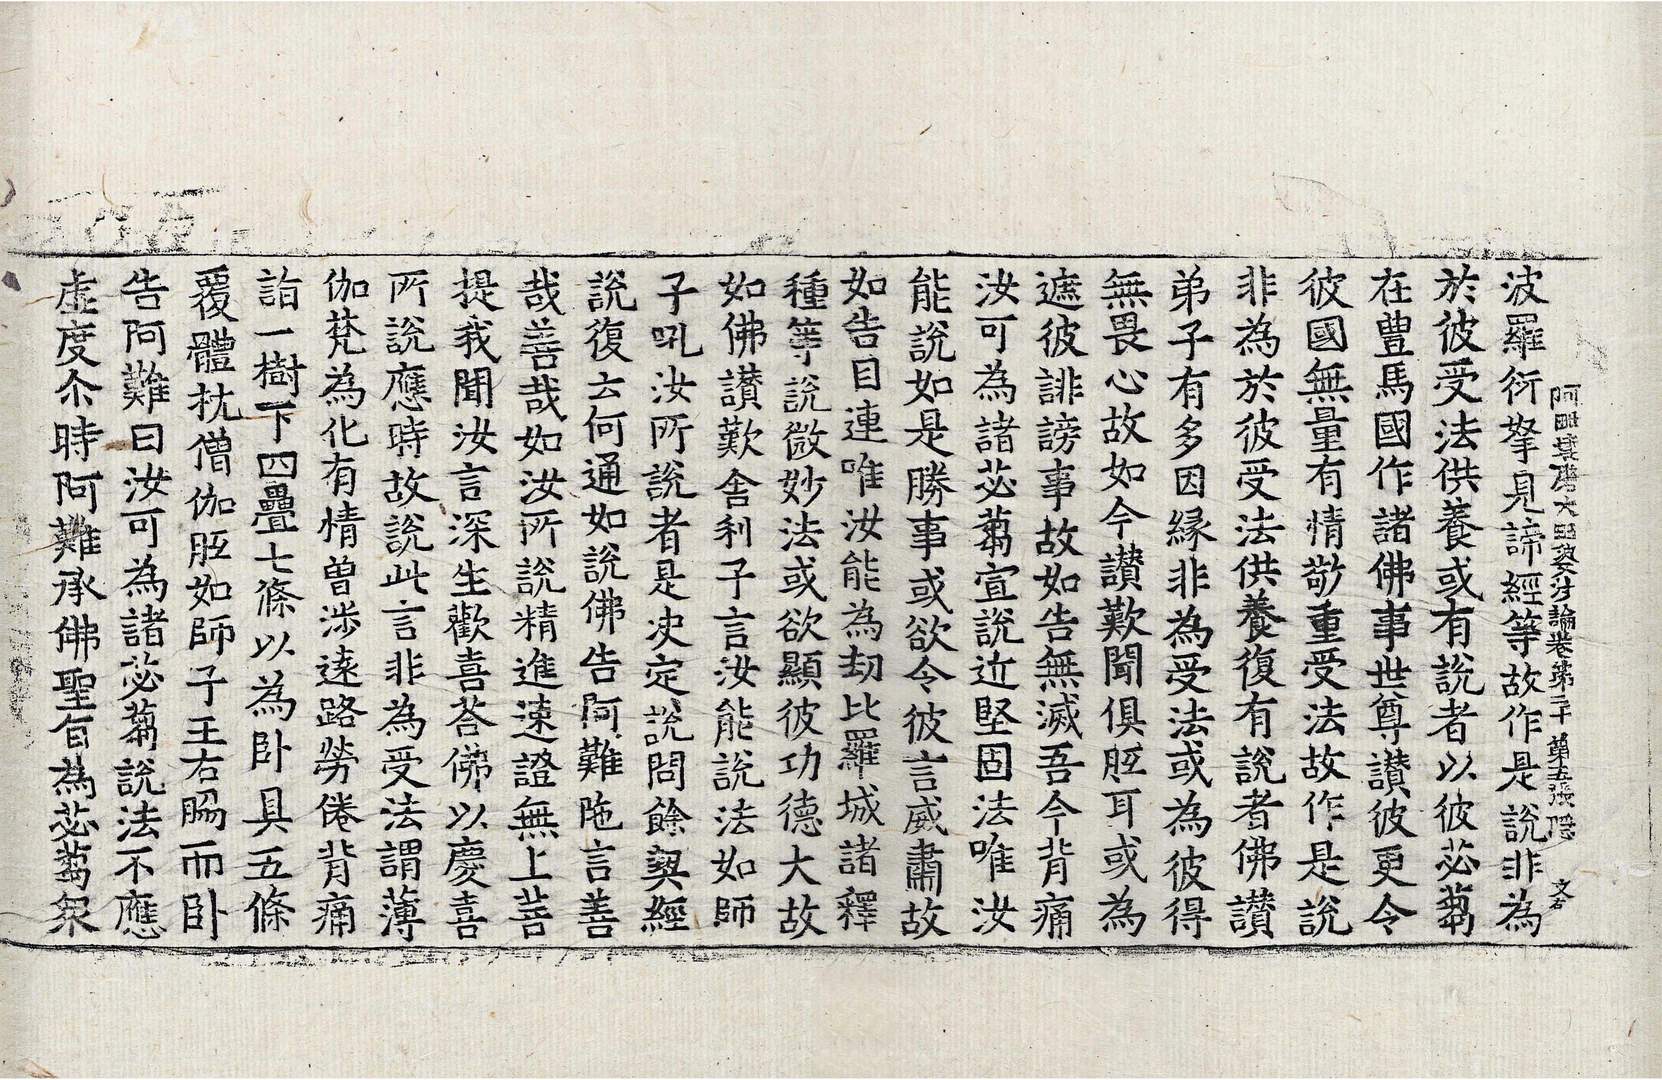 阿毗達磨大毗婆沙論卷第二十 第五張 隱
波羅衍拏見諦經等故作是說非為
於彼受法供養或有說者以彼苾蒭
在豊馬國作諸佛事世尊讃彼更令
彼國無量有情敬重受法故作是說
非為於彼受法供養復有說者佛讃
弟子有多因縁非為受法或為彼得
無畏心故如今讃歎聞俱胝耳或為
遮彼誹謗事故如告無滅吾今背痛
汝可為諸苾蒭宣說近堅固法唯汝
能說如是勝事或欲令彼言威肅故
如告目連唯汝能為劫比羅城諸釋
種等說微妙法或欲顯彼功德大故
如佛讃歎舍利子言汝能說法如師
子吼汝所說者是決定說問餘契經
說復云何通如說佛告阿難陁言善
哉善哉如汝所說精進速證無上菩
提我聞汝言深生歡喜荅佛以慶喜
所說應時故說此言非為受法謂薄
伽梵為化有情曾涉遠路勞倦背痛
詣一樹下四疊七條以為卧具五條
覆體枕僧伽胝如師子王右脇而卧
告阿難曰汝可為諸苾蒭說法不應
虛度尒時阿難承佛聖旨為苾蒭衆